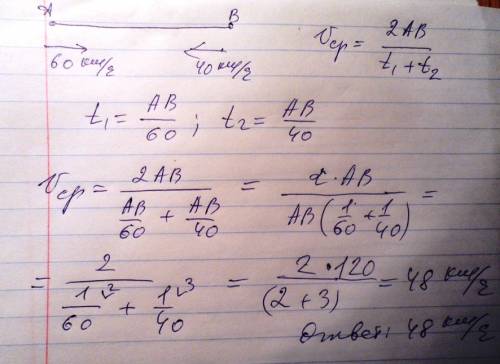 A B
60 км/ч 40 км/ч
Vср = 2AB / (t₁ + t₂)
t₁ = AB/60 ; t₂ = AB/40
Vср = 2AB / (AB/60 + AB/40) = 2·AB / (AB(1/60 + 1/40)) =
= 2 / (1/60 ² + 1/40 ³) = 2·120 / (2+3) = 48 км/ч
Ответ: 48 км/ч